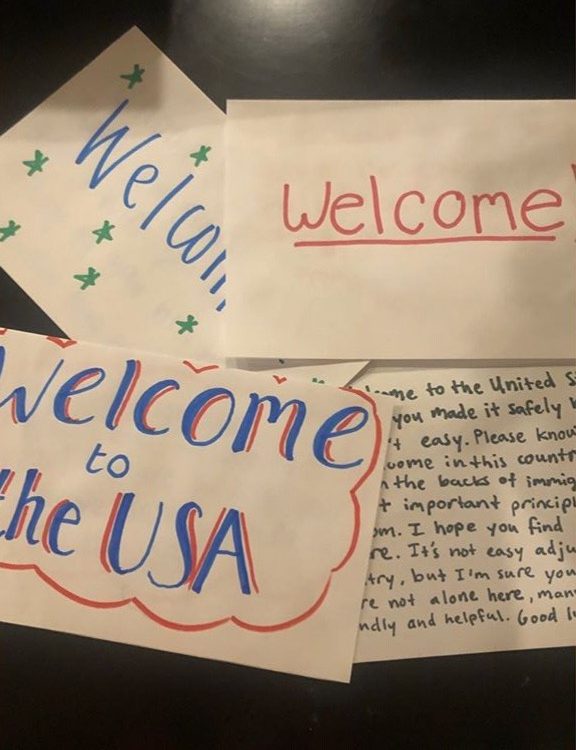 Welcom
Welcome!
Welcome
to
the USA
come to the United S
you made it safely
t easy. Please know
come in this countr
the backs of immig
t important principl
om. I hope you find
re. It's not easy adju
try, but I'm sure you
re not alone here, man
ndly and helpful. Good l